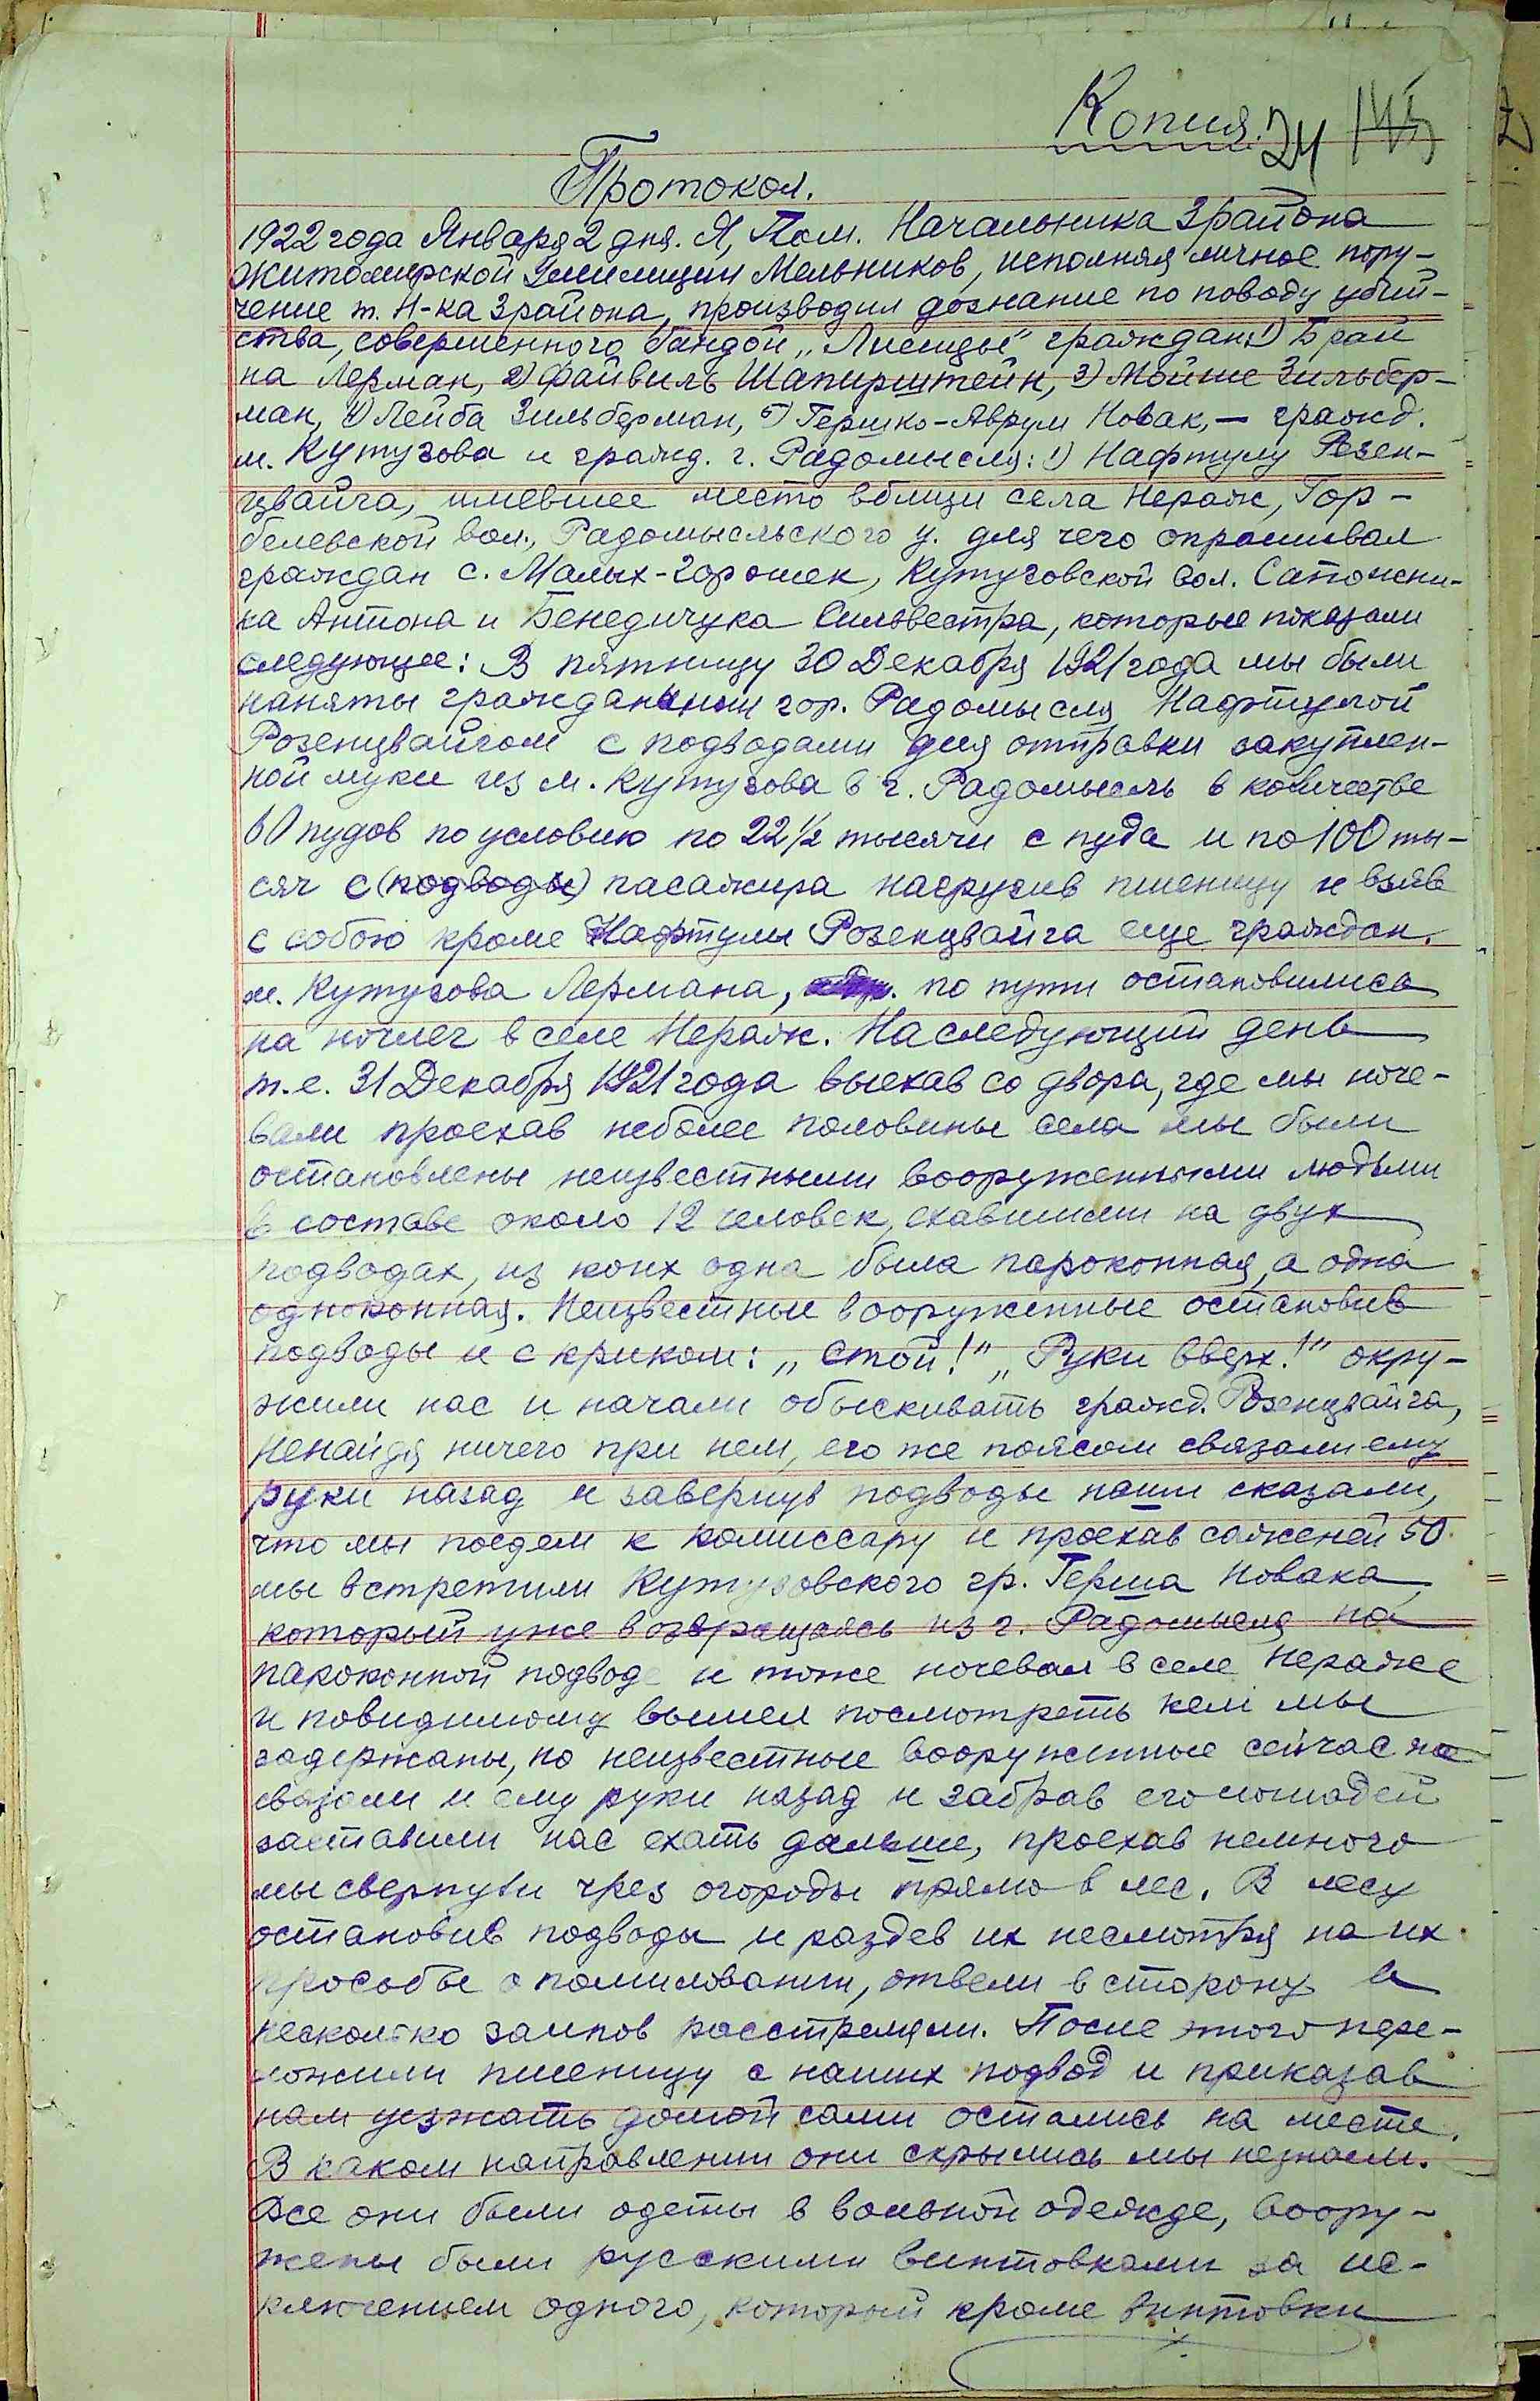 Копия. 24 145
Протокол.
1922 года Января 2 дня. Я, Пом. Начальника 3 района
Житомирской Умилиции Мельников, исполняя личное пору-
чение т. Н-ка 3 района, производил дознание по поводу убий-
ства, совершенного бандой „Лисицы" граждан: 1) Брай
на Лерман, 2) Файвиль Шапирштейн, 3) Мойше Зильбер-
ман, 4) Лейба Зильберман, 5) Гершко-Аврум Новак, — гражд.
м. Кутузова и гражд. г. Радомысля: 1) Нафтулу Розен-
цвайга, имевшее место вблизи села Нераж, Гор-
белевской вол., Радомысльского у. для чего опрашивал
граждан с. Малых-Горошек, Кутузовской вол. Сапожни-
ка Антона и Бенедичука Сильвестра, которые показали
следующее: В пятницу 30 Декабря 1921 года мы были
наняты гражданином гор. Радомысля Нафтулой
Розенцвайгом с подводами для отправки закуплен-
ной муки из м. Кутузова в г. Радомысль в количестве
60 пудов по условию по 22 1/2 тысячи с пуда и по 100 ты-
сяч с (подводы) пасажира нагрузив пшеницу и взяв
с собою кроме Нафтулы Розенцвайга еще граждан.
м. Кутузова Лермана, по пути остановились
на ночлег в селе Нераж. На следующий день
т.е. 31 Декабря 1921 года выехав со двора, где мы ноче-
вали проехав неболее половины села мы были
остановлены неизвестными вооруженными людьми
в составе около 12 человек, ехавшими на двух
подводах, из коих одна была пароконная, а одна
одноконная. Неизвестные вооруженные остановив
подводы и с криком: „Стой!" „Руки вверх!" окру-
жили нас и начали обыскивать гражд. Розенцвайга,
ненайдя ничего при нем, его же поясом связали ему
руки назад и завернув подводы наши сказали,
что мы поедем к комиссару и проехав саженей 50
мы встретили Кутузовского гр. Герша Новака,
который уже возвращаясь из г. Радомысля на
пароконной подводе и тоже ночевал в селе Нераже
и повидимому вышел посмотреть кем мы
задержаны, но неизвестные вооруженные сейчас же
связали и ему руки назад и забрав его лошадей
заставили нас ехать дальше, проехав немного
мы свернули чрез огороды прямо в лес. В лесу
остановив подводы и раздев их несмотря на их
просьбы о помиловании, отвели в сторону и
несколько залпов расстреляли. После этого пере-
ложили пшеницу с наших подвод и приказав
нам уезжать домой сами остались на месте.
В каком направлении они скрылись мы незнаем.
Все они были одеты в вольной одежде, воору-
жены были русскими винтовками за ис-
ключением одного, который кроме винтовки